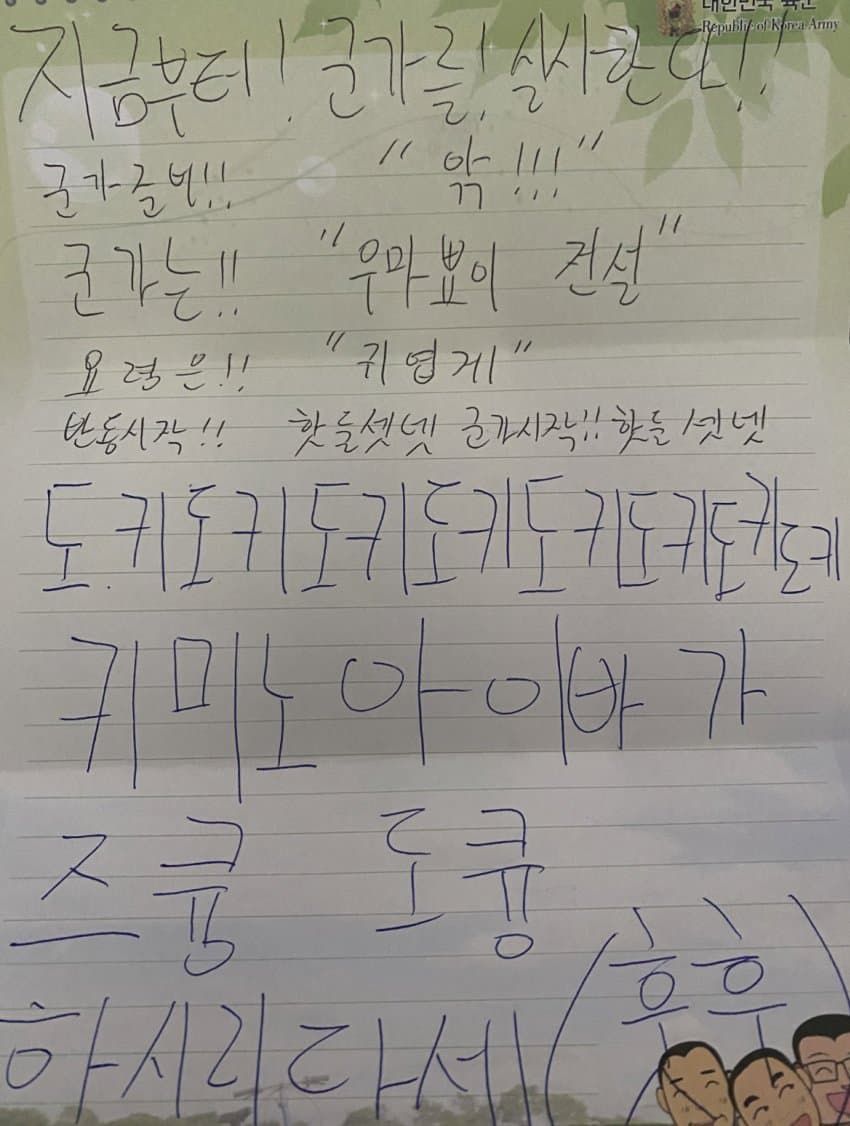 대한민국 육군
Republic of Korea Army
지금부터! 군가를! 실시한다!!
군가준비!! "악!!!"
군가는!! "우마뾰이 전설"
요령은!! "귀엽게"
반동시작!! 핫둘셋넷 군가시작!! 핫둘셋넷
도키도키도키도키도키도키도키도키
키미노아이바가
즈큥 도큥
하시리다세(후후